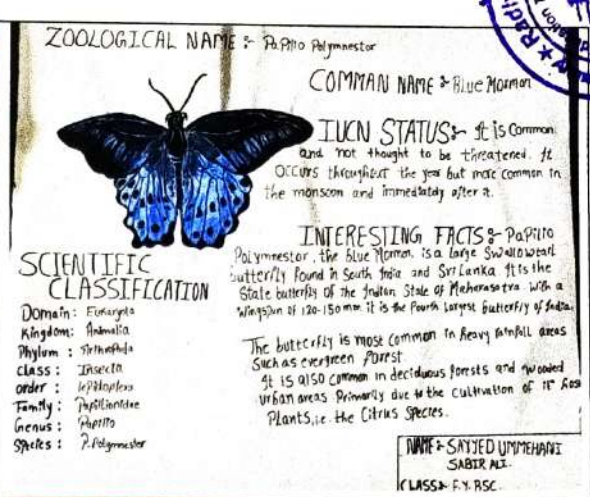 ZOOLOGICAL NAME :- Papilio Polymnestor
COMMAN NAME :- Blue Mormon
IUCN STATUS:- It is Common
and not thought to be threatened. It
occurs throughout the year but more common in
the monsoon and immediately after it.
INTERESTING FACTS :- Papilio
Polymnestor, the Blue Mormon, is a large Swallowtail
butterfly Found in South India and Sri Lanka It is the
State butterfly of the Indian State of Meharasatra. With a
wingspun of 120-150 mm it is the Fourth largest butterfly of India.
The butterfly is most common in heavy rainfall areas
Such as evergreen forest
It is also common in deciduous forests and wooded
urban areas Primarily due to the Cultivation of it host
Plants, i.e. the Citrus Species.
SCIENTIFIC
CLASSIFICATION
Domain : Eukaryota
Kingdom: Animalia
Phylum : Arthropoda
class : Insecta
order : lepidoptera
Family : Papilionidae
Genus : Papilio
Species : P. Polymnester
NAME :- SAYYED UMMEHANI
SABIR ALI.
CLASS:- F.Y. BSC.